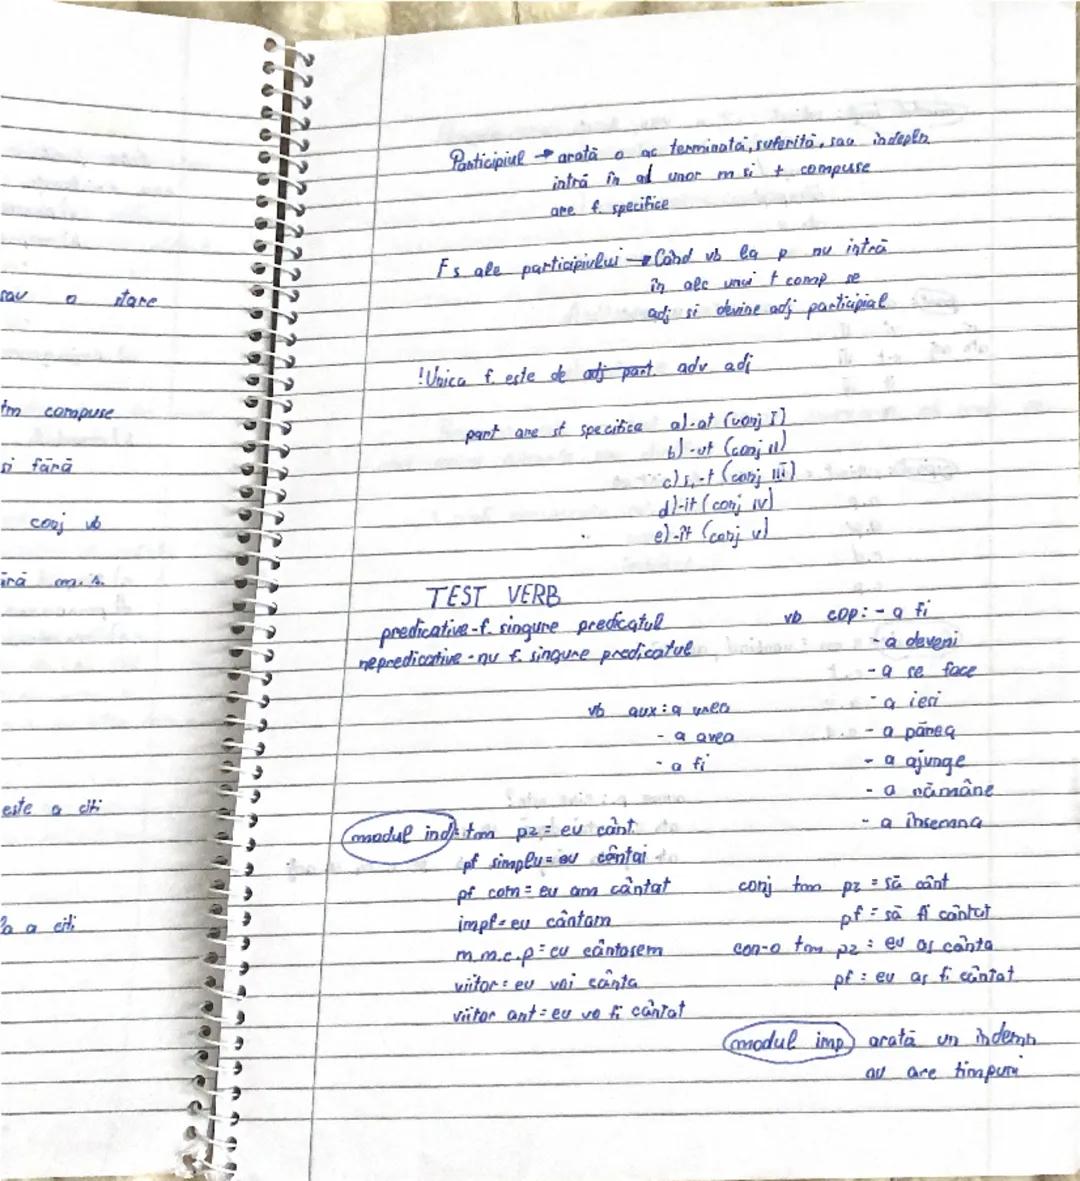 sau o stare
tm compuse
si fără
conj vb
m.s.
este a citi
a citi
Participiul → arată o ac terminată, suferită, sau îndepln.
intră în al unor m si t compuse
are f. specifice
Fs ale participiului → Când vb la p nu intră
în alc unui t comp se
adj si devine adj participial
!Unica f. este de adj part. adv adj
part are sf specifice a)-at (conj I)
b)-ut (conj II)
c)s,-t (conj III)
d)-it (conj IV)
e)-ît (conj V)
TEST VERB
predicative-f. singure predicatul
nepredicative-nu f. singure predicatul
vb cop: - a fi
- a deveni
- a se face
- a iesi
- a părea
- a ajunge
- a rămâne
- a însemna
vb aux: a vrea
- a avea
- a fi
modul ind: tm pz = eu cânt
pf simplu = eu cântai
pf com = eu am cântat
impf = eu cântam
m.m.c.p = eu cântasem
viitor = eu voi cânta
viitor ant = eu vo fi cântat
conj tm pz = să cânt
pf = să fi cântat
con-o tm pz = eu as cânta
pf = eu as fi cântat
modul imp arată un îndemn
nu are timpuri